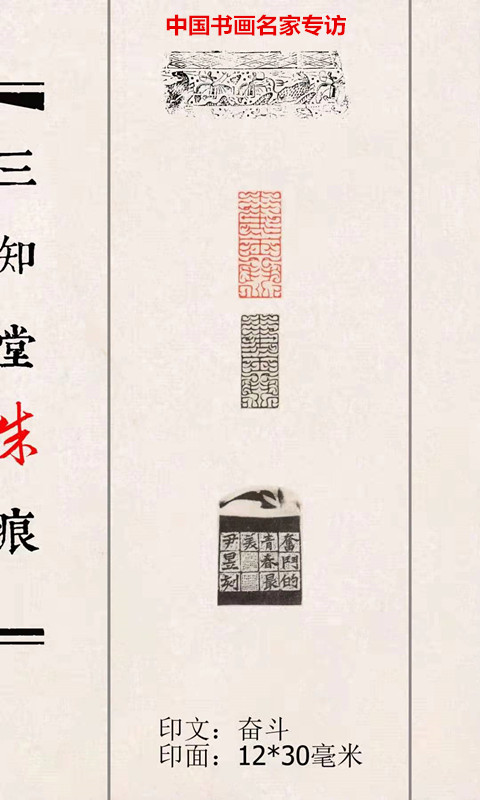 中国书画名家专访
三知堂朱痕
奮鬥的
青春最
美
尹昱刻
印文：奋斗
印面：12*30毫米